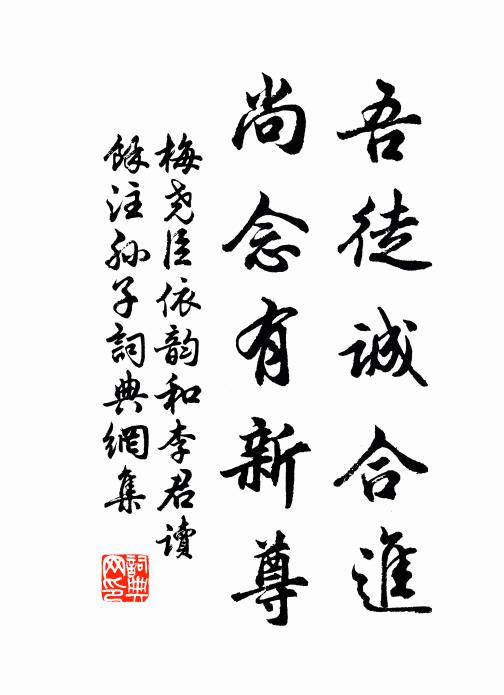 吾徒誠合進
尚念有新尊
梅堯臣依韵和李君讀
餘注孙子詞典網集
詞典网印